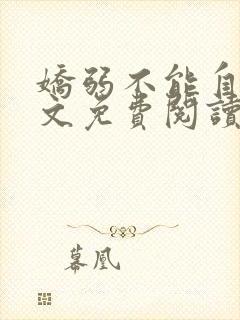 嬌弱不能自
文免費閱讀
暮凰